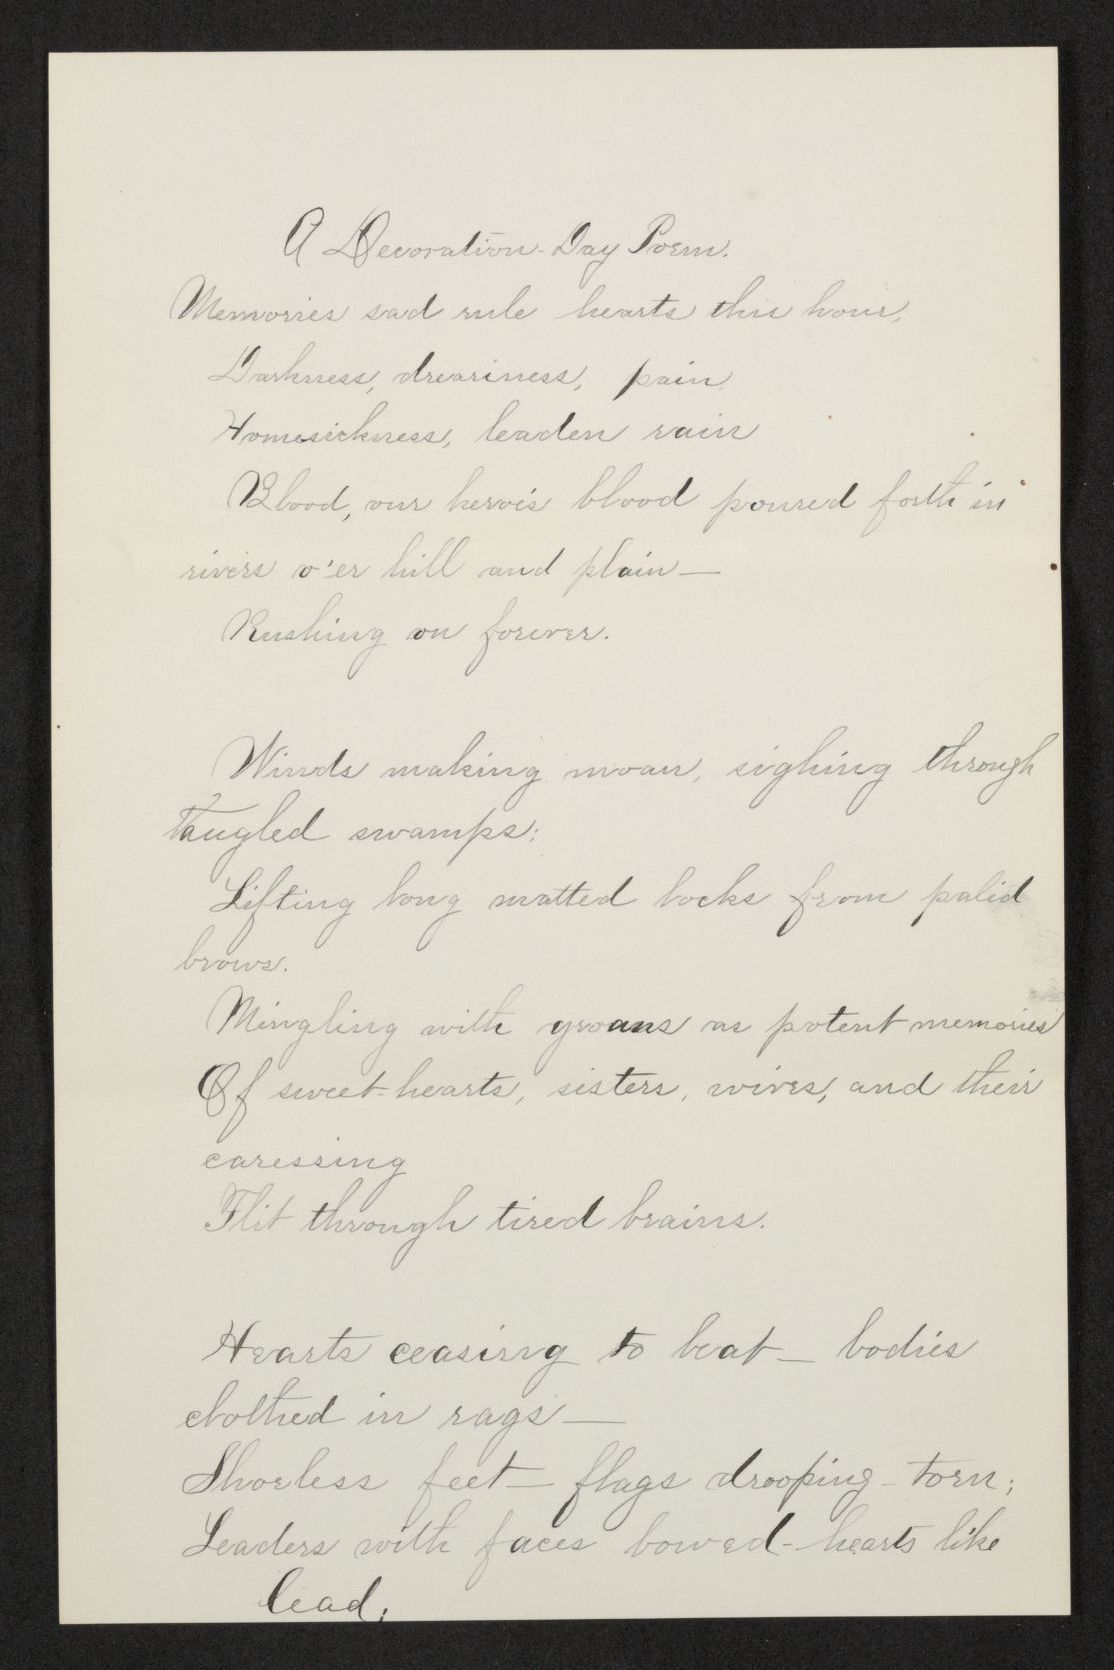 A Decoration-Day Poem.
Memories sad rule hearts this hour,
Darkness, dreariness, pain
Homesickness, leaden rain
Blood, our heroe's blood poured forth in
rivers o'er hill and plain—
Rushing on forever.
Winds making moan, sighing through
tangled swamps;
Lifting long matted locks from palid
brows.
Mingling with groans as potent memories
Of sweet-hearts, sisters, wives, and their
caressing
Flit through tired brains.
Hearts ceasing to beat— bodies
clothed in rags—
Shoeless feet— flags drooping- torn;
Leaders with faces bowed- hearts like
lead;